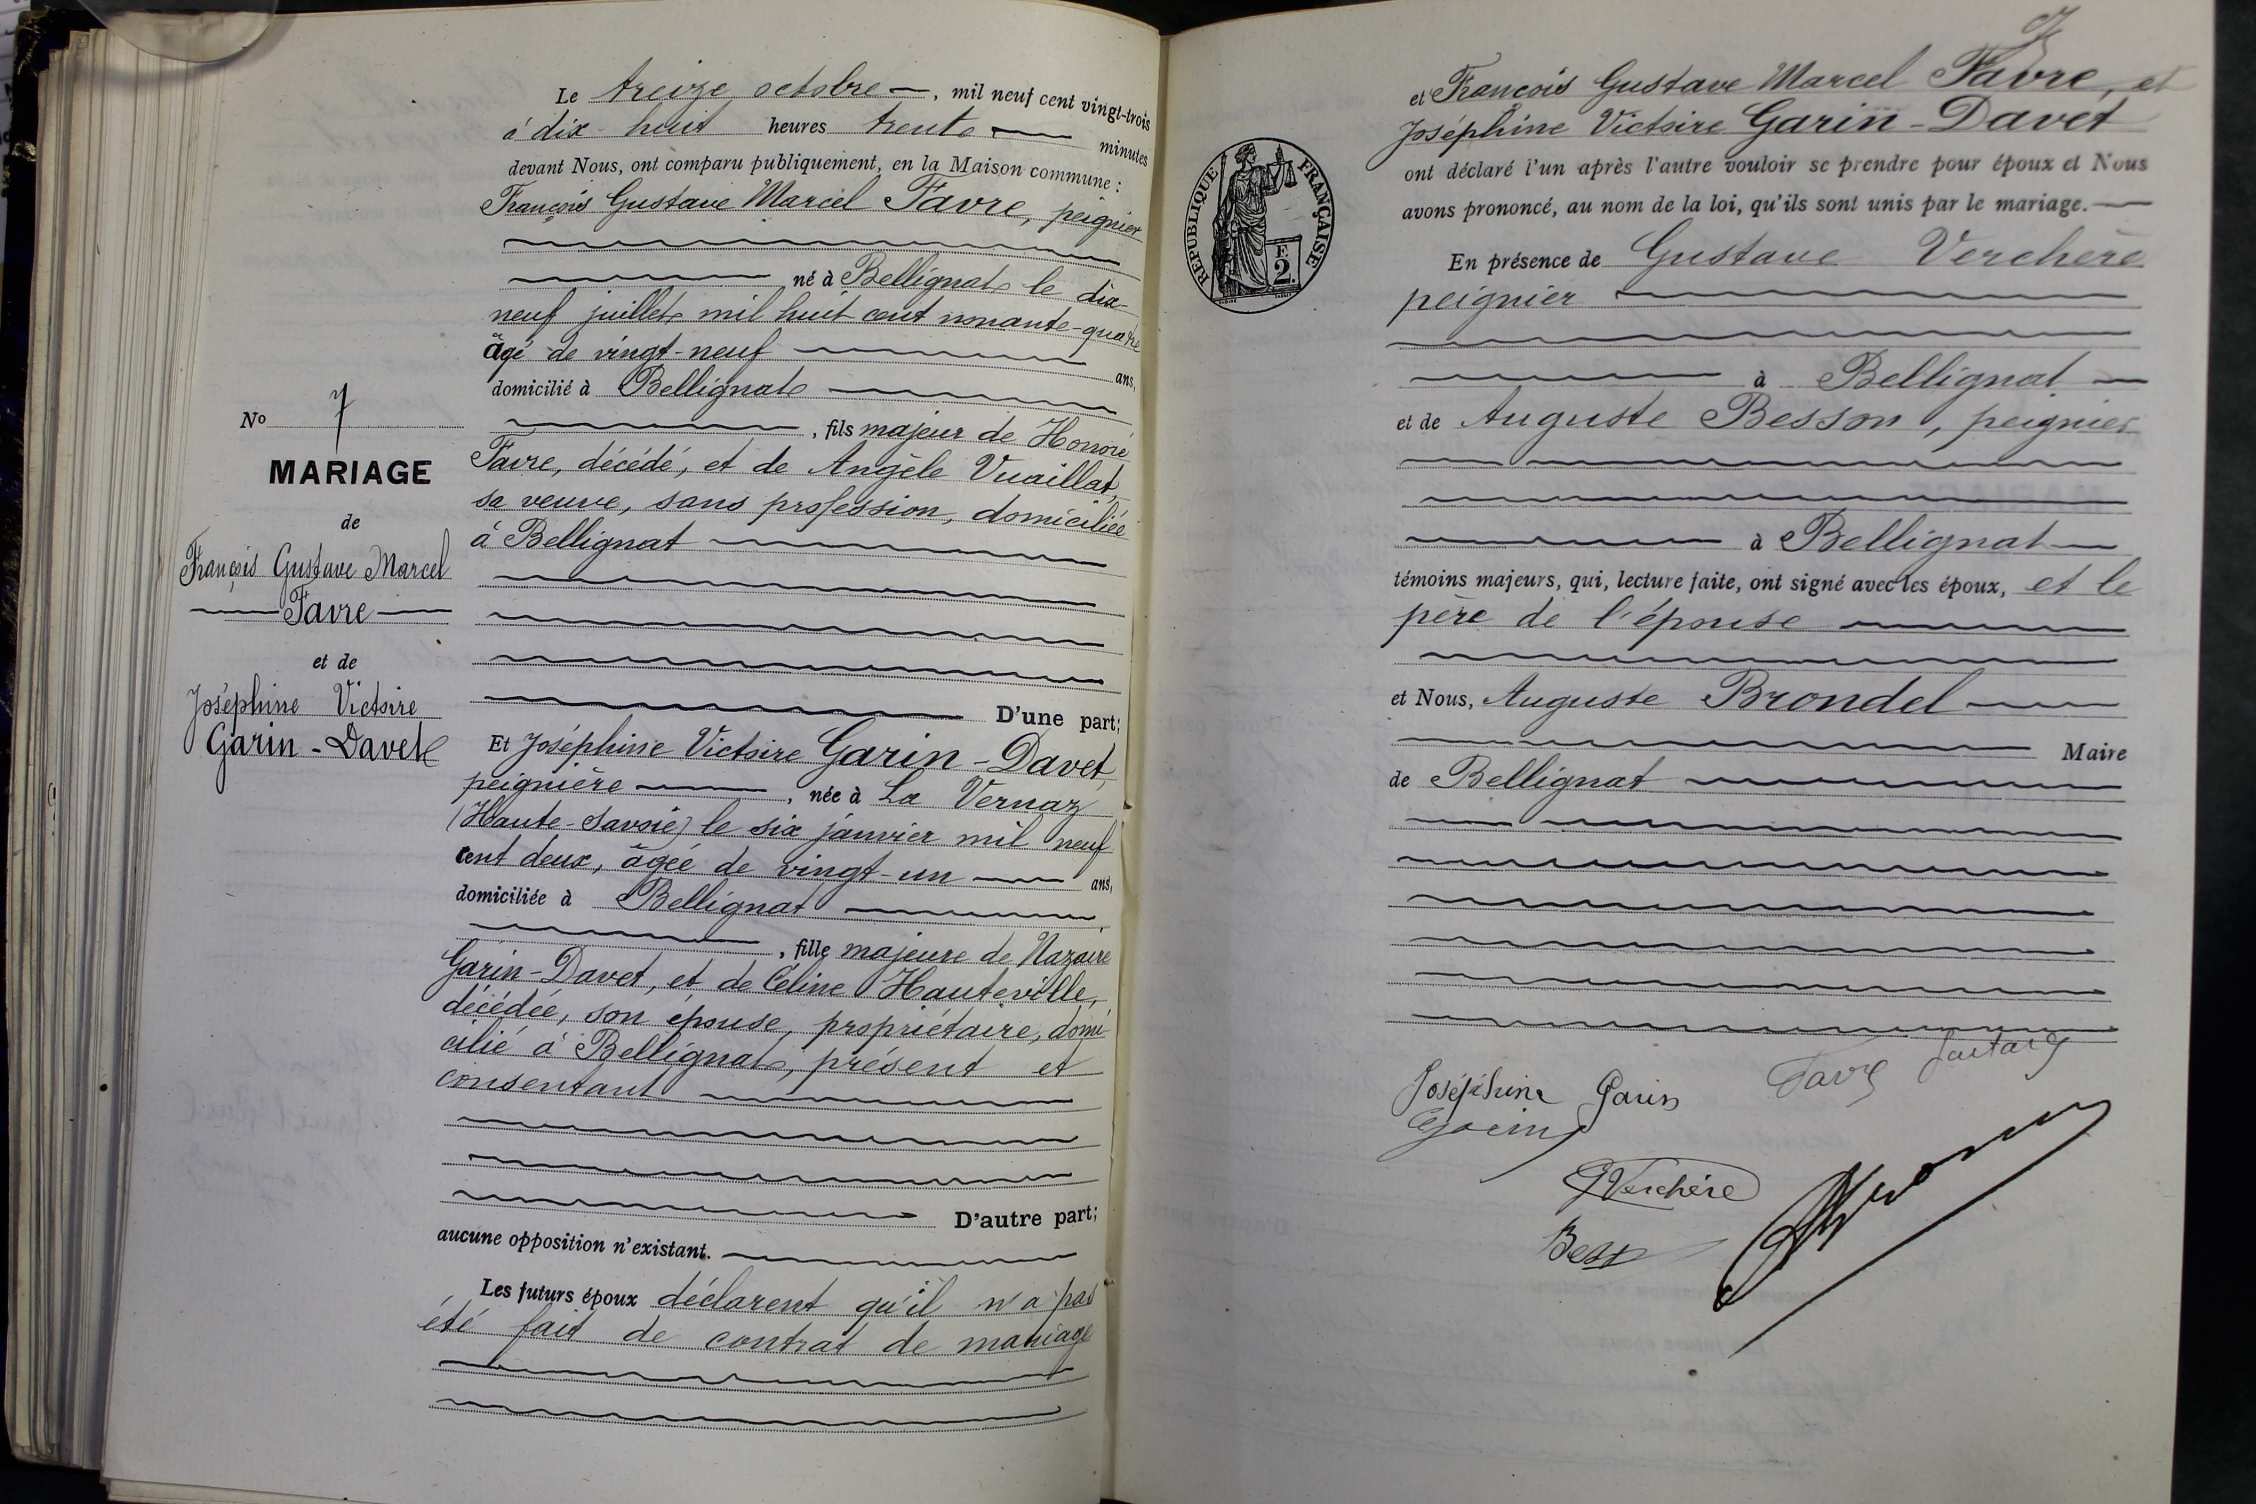 Le treize octobre, mil neuf cent vingt-trois
à dix-huit heures trente minutes
devant Nous, ont comparu publiquement, en la Maison commune :
François Gustave Marcel Favre, peignier
né à Bellignat le dix-
neuf juillet mil huit cent nonante-quatre
âgé de vingt-neuf ans,
domicilié à Bellignat
, fils majeur de Honoré
Favre, décédé, et de Angèle Vuaillat,
sa veuve, sans profession, domiciliée
à Bellignat
D'une part;
No 7
MARIAGE
de
François Gustave Marcel
Favre
et de
Joséphine Victoire
Garin-Davet
Et Joséphine Victoire Garin-Davet,
peignière, née à La Vernaz
(Haute-Savoie) le six janvier mil neuf
cent deux, âgée de vingt-un ans,
domiciliée à Bellignat
, fille majeure de Nazaire
Garin-Davet, et de Céline Hauteville,
décédée, son épouse, propriétaire, domi-
cilié à Bellignat, présent et
consentant
D'autre part;
aucune opposition n'existant.
Les futurs époux déclarent qu'il n'a pas
été fait de contrat de mariage
et François Gustave Marcel Favre, et
Joséphine Victoire Garin-Davet
ont déclaré l'un après l'autre vouloir se prendre pour époux et Nous
avons prononcé, au nom de la loi, qu'ils sont unis par le mariage.
RÉPUBLIQUE FRANÇAISE
E
2
En présence de Gustave Verchère
peignier
à Bellignat
et de Auguste Besson, peignier
à Bellignat
témoins majeurs, qui, lecture faite, ont signé avec les époux, et le
père de l'épouse
et Nous, Auguste Brondel
Maire
de Bellignat
Joséphine Garin Favre Gustave
Garin
G Verchère